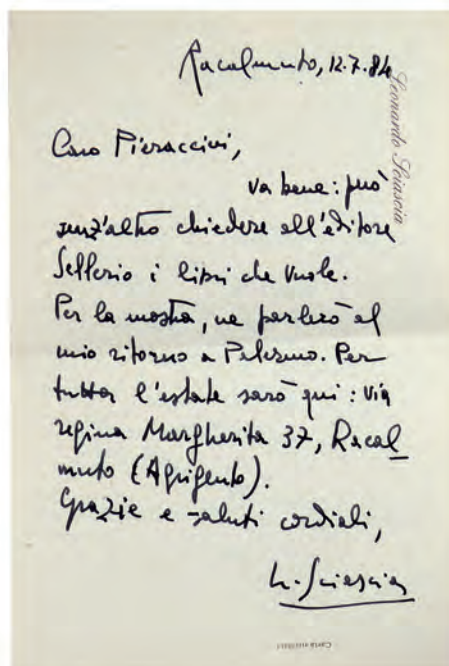 Racalmuto, 12.7.84
Leonardo Sciascia
Caro Pieraccini,
va bene: può
senz'altro chiedere all'editore
Sellerio i libri che vuole.
Per la mostra, ne parlerò al
mio ritorno a Palermo. Per
tutta l'estate sarò qui: via
regina Margherita 37, Racal
muto (Agrigento).
Grazie e saluti cordiali,
L. Sciascia